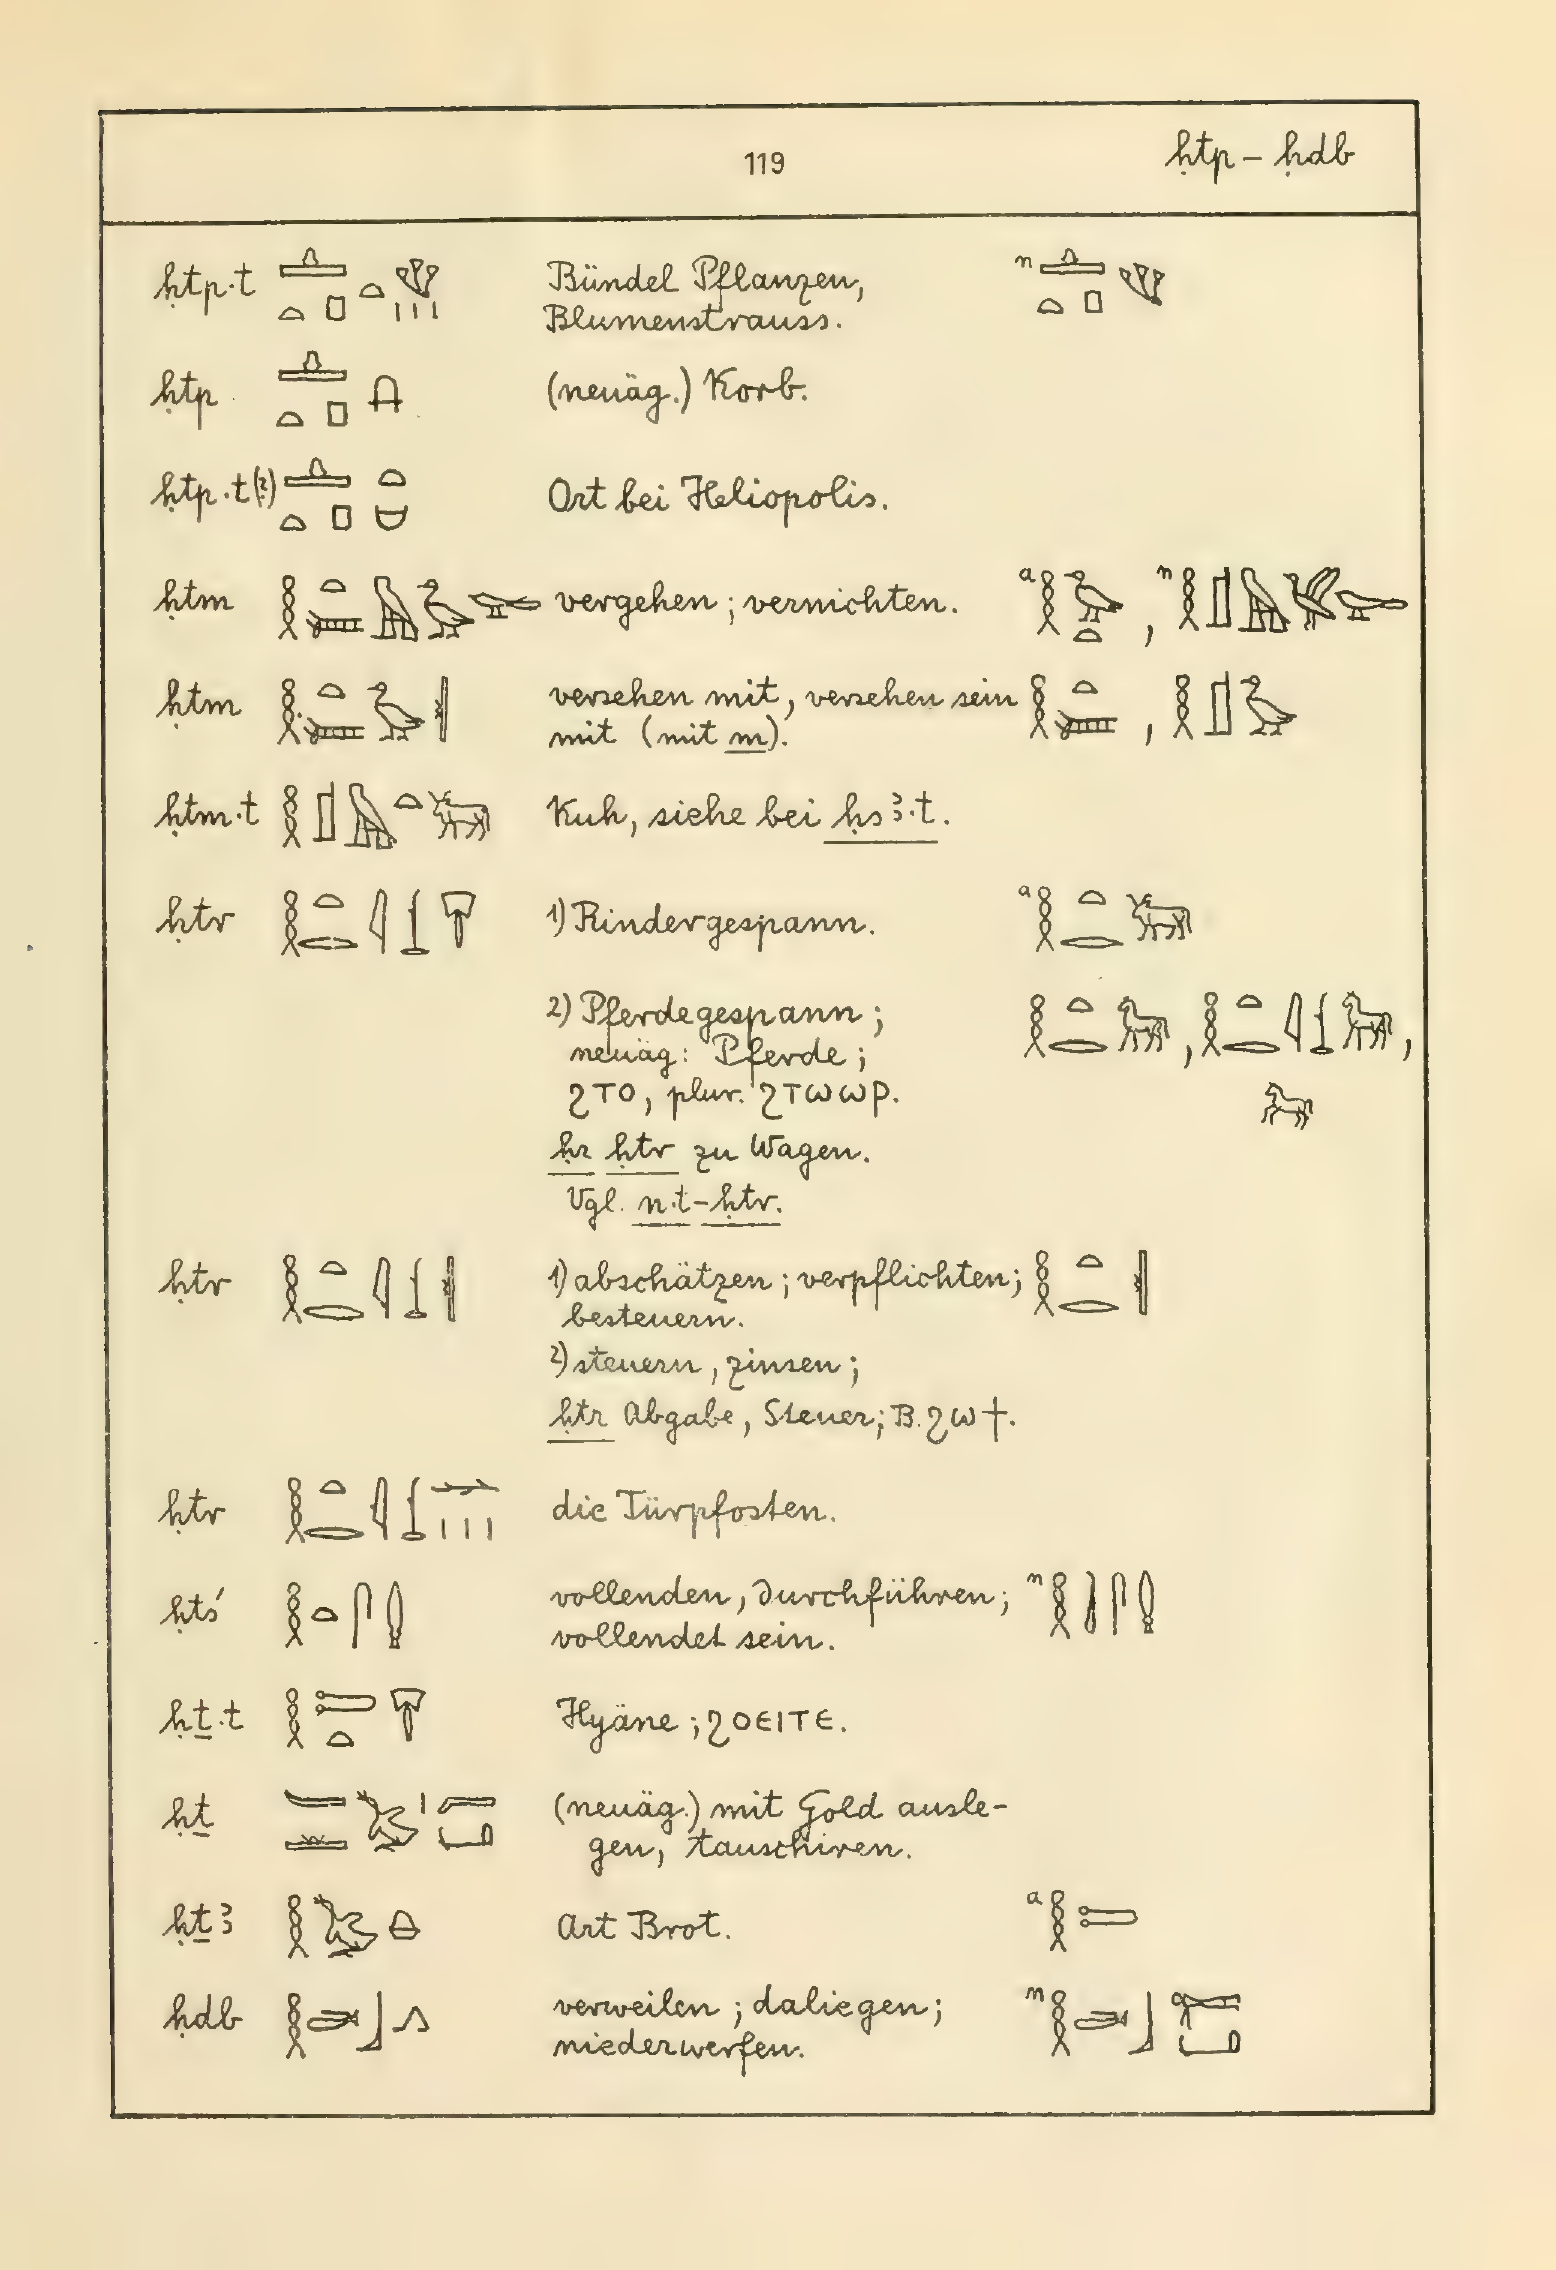 119 ḥtp – ḥdb
ḥtp·t Bündel Pflanzen, n
Blumenstrauss.
ḥtp (neuäg.) Korb.
ḥtp·t(?) Ort bei Heliopolis.
ḥtm vergehen; vernichten. a , n
ḥtm versehen mit, versehen sein ,
mit (mit m).
ḥtm·t Kuh, siehe bei ḥsꜣ·t.
ḥtr 1) Rindergespann. a
2) Pferdegespann; , ,
neuäg: Pferde;
ϩⲧⲟ, plur. ϩⲧⲱⲱⲣ.
ḥr ḥtr zu Wagen.
Vgl. n·t–ḥtr.
ḥtr 1) abschätzen; verpflichten;
besteuern.
2) steuern, zinsen;
ḥtr Abgabe, Steuer; B. ϩⲱϯ.
ḥtr die Türpfosten.
ḥtś vollenden, durchführen; n
vollendet sein.
ḥṯ·t Hyäne; ϩⲟⲉⲓⲧⲉ.
ḥṯ (neuäg.) mit Gold ausle-
gen, tauschiren.
ḥṯꜣ Art Brot. a
ḥdb verweilen; daliegen; n
niederwerfen.